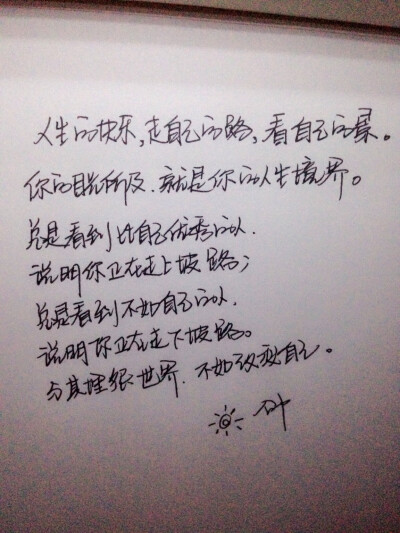 人生的快乐,走自己的路,看自己的景。
你的目光所及.就是你的人生境界。
总是看到比自己优秀的人.
说明你正在走上坡路;
总是看到不如自己的人.
说明你正在走下坡路。
与其埋怨世界.不如改变自己。
叶